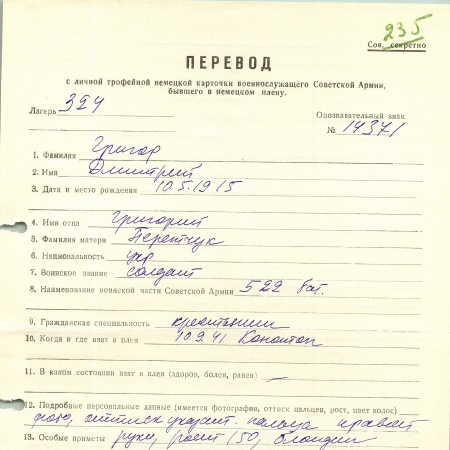 235
Сов. секретно
ПЕРЕВОД
с личной трофейной немецкой карточки военнослужащего Советской Армии,
бывшего в немецком плену.
Лагерь 324
Опознавательный знак
№ 14371
1. Фамилия Григор
2. Имя Дмитрий
3. Дата и место рождения 10.5.1915
4. Имя отца Григорий
5. Фамилия матери
6. Национальность укр
7. Воинское звание солдат
8. Наименование воинской части Советской Армии 522 бат.
9. Гражданская специальность крестьянин
10. Когда и где взят в плен 10.9.41 Конотоп
11. В каком состоянии взят в плен (здоров, болен, ранен) —
12. Подробные персональные данные (имеется фотография, оттиск пальцев, рост, цвет волос)
фото, оттиск указат. пальца правой
13. Особые приметы руки, рост 150, блондин